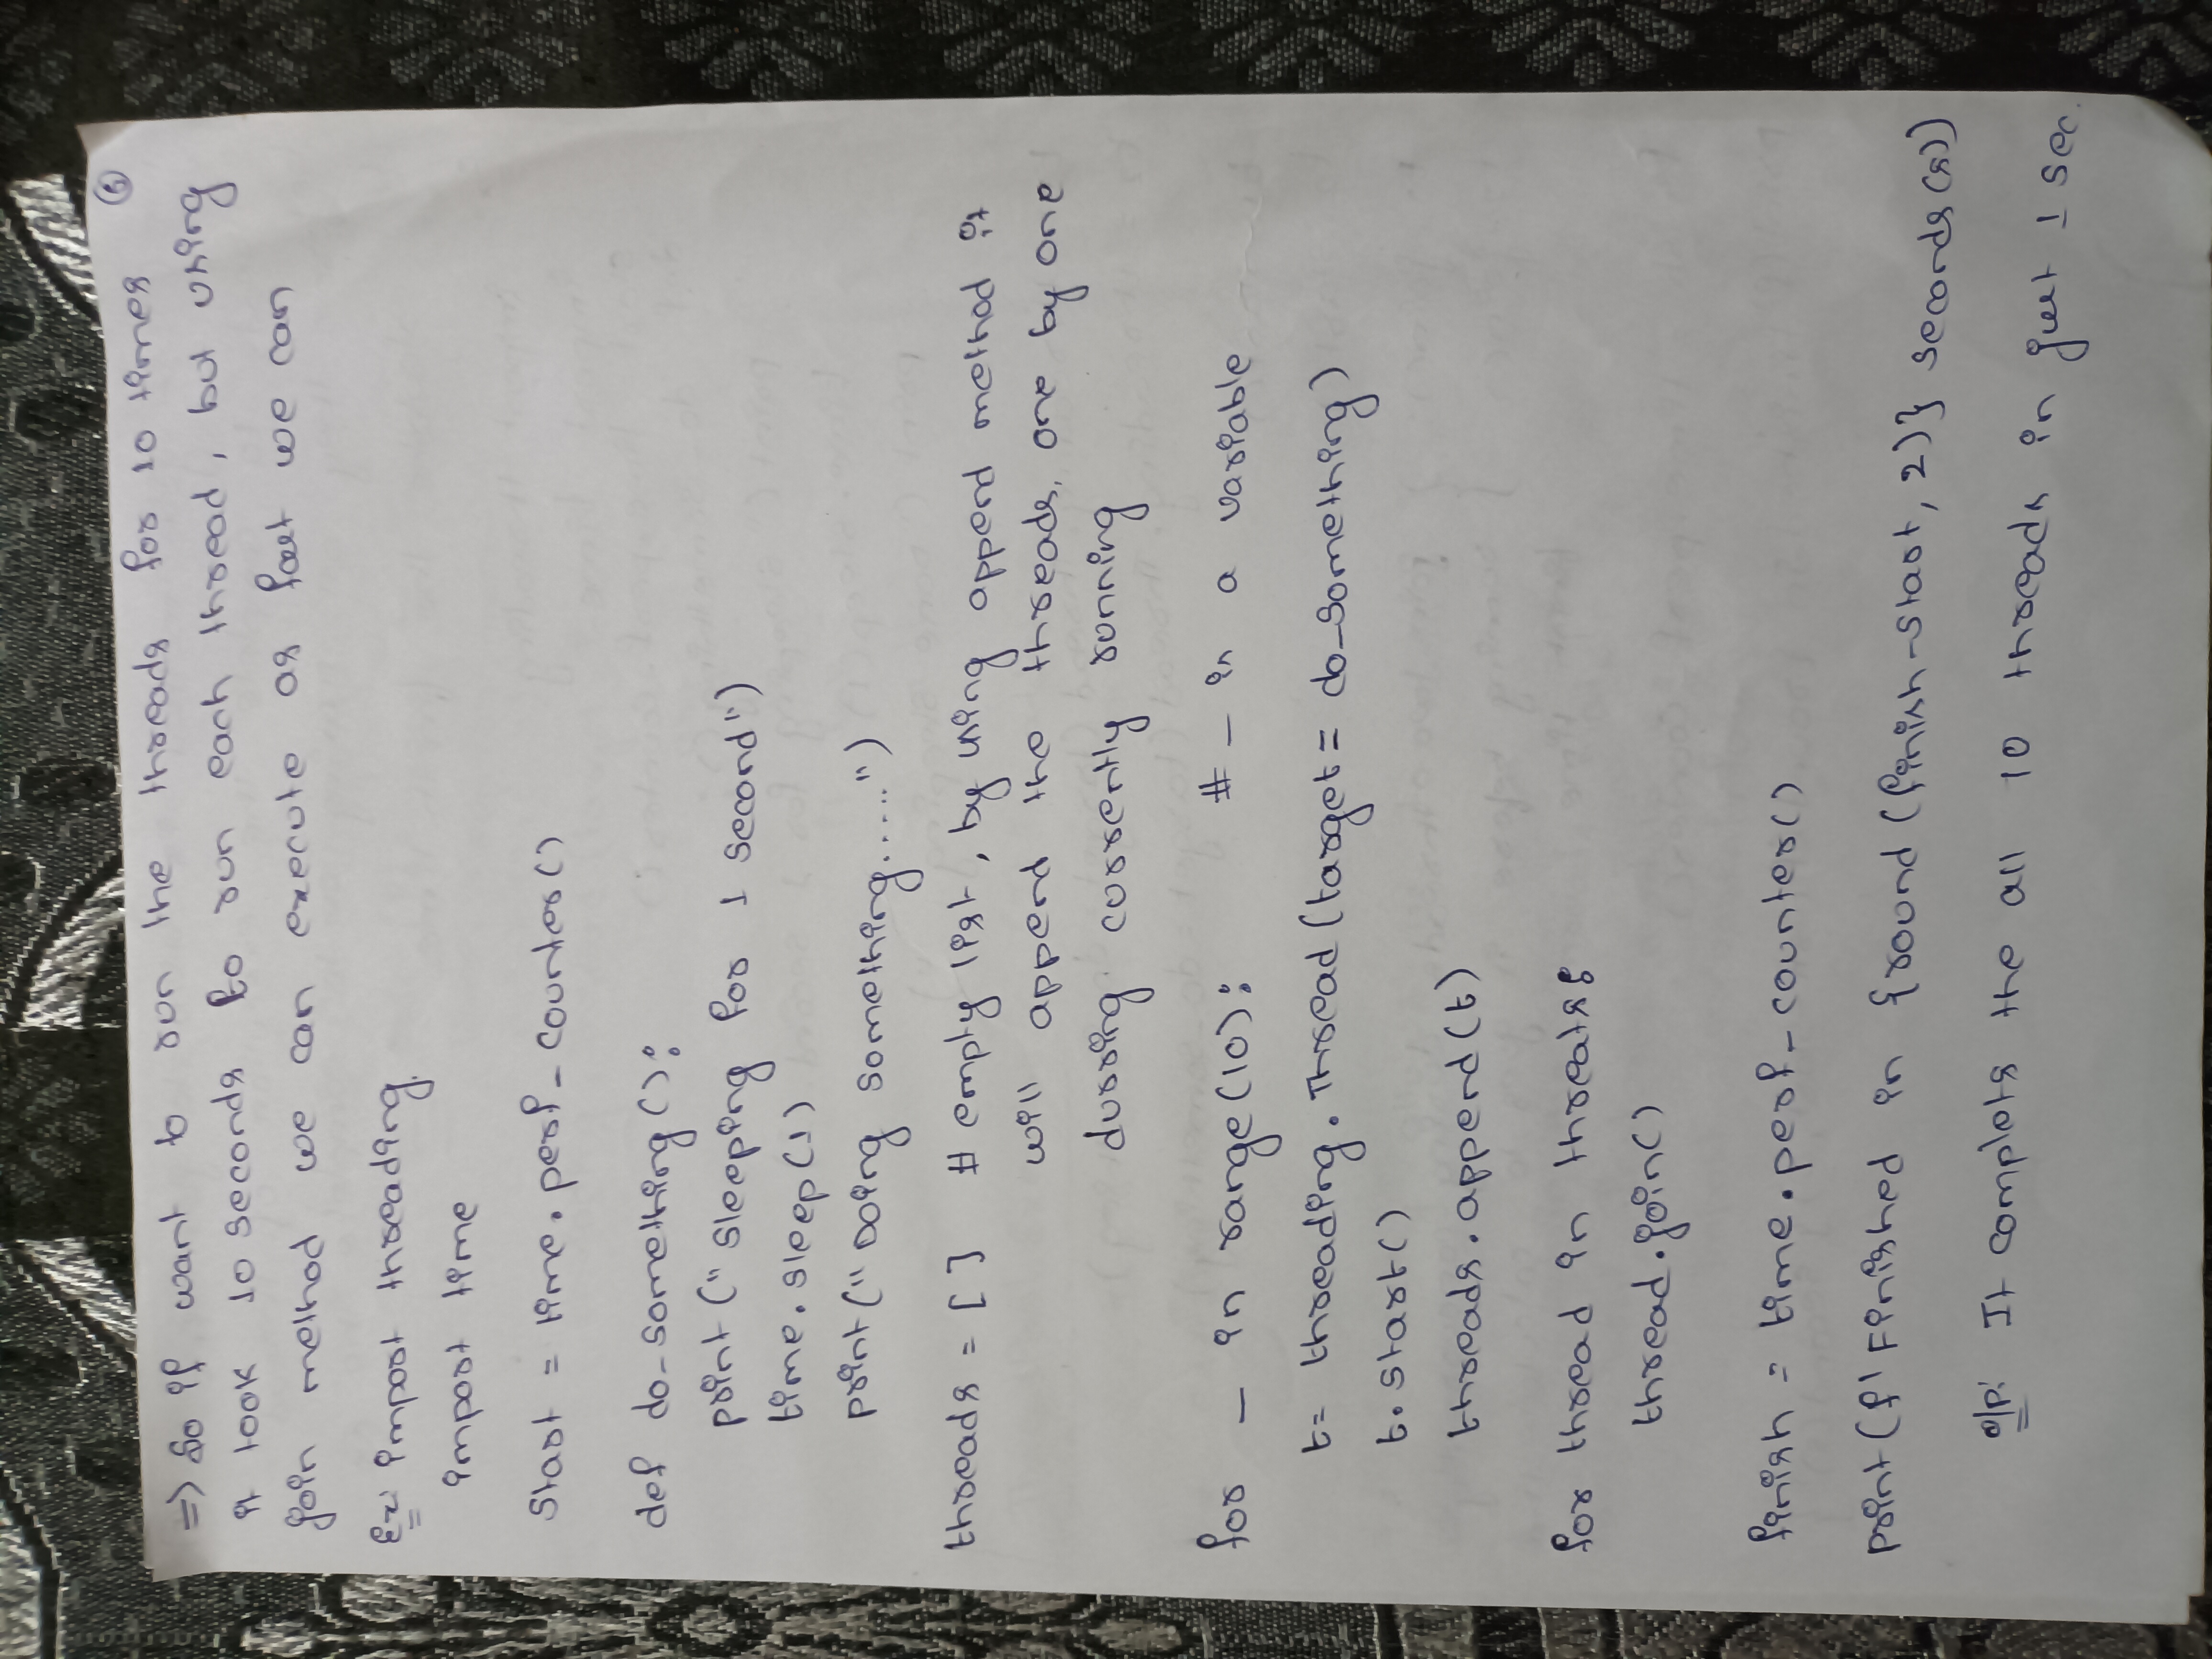 6
=> So if want to run the threads for 10 times
it took 10 seconds to run each thread, but using
join method we can execute as fast we can
Ex: import threading
import time
start = time.perf_counter()
def do_something():
print("sleeping for 1 second")
time.sleep(1)
print("Doing something......")
threads = [] # empty list, by using append method it
will append the threads, one by one
durring currently running
for _ in range(10): # _ is a variable
t= threading.Thread(target = do_something)
t.start()
threads.append(t)
for thread in threats:
thread.join()
finish = time.perf_counter()
print(f'Finished in {round(finish-start, 2)} seconds(s))
o/p: It complets the all 10 threads in just 1 sec.